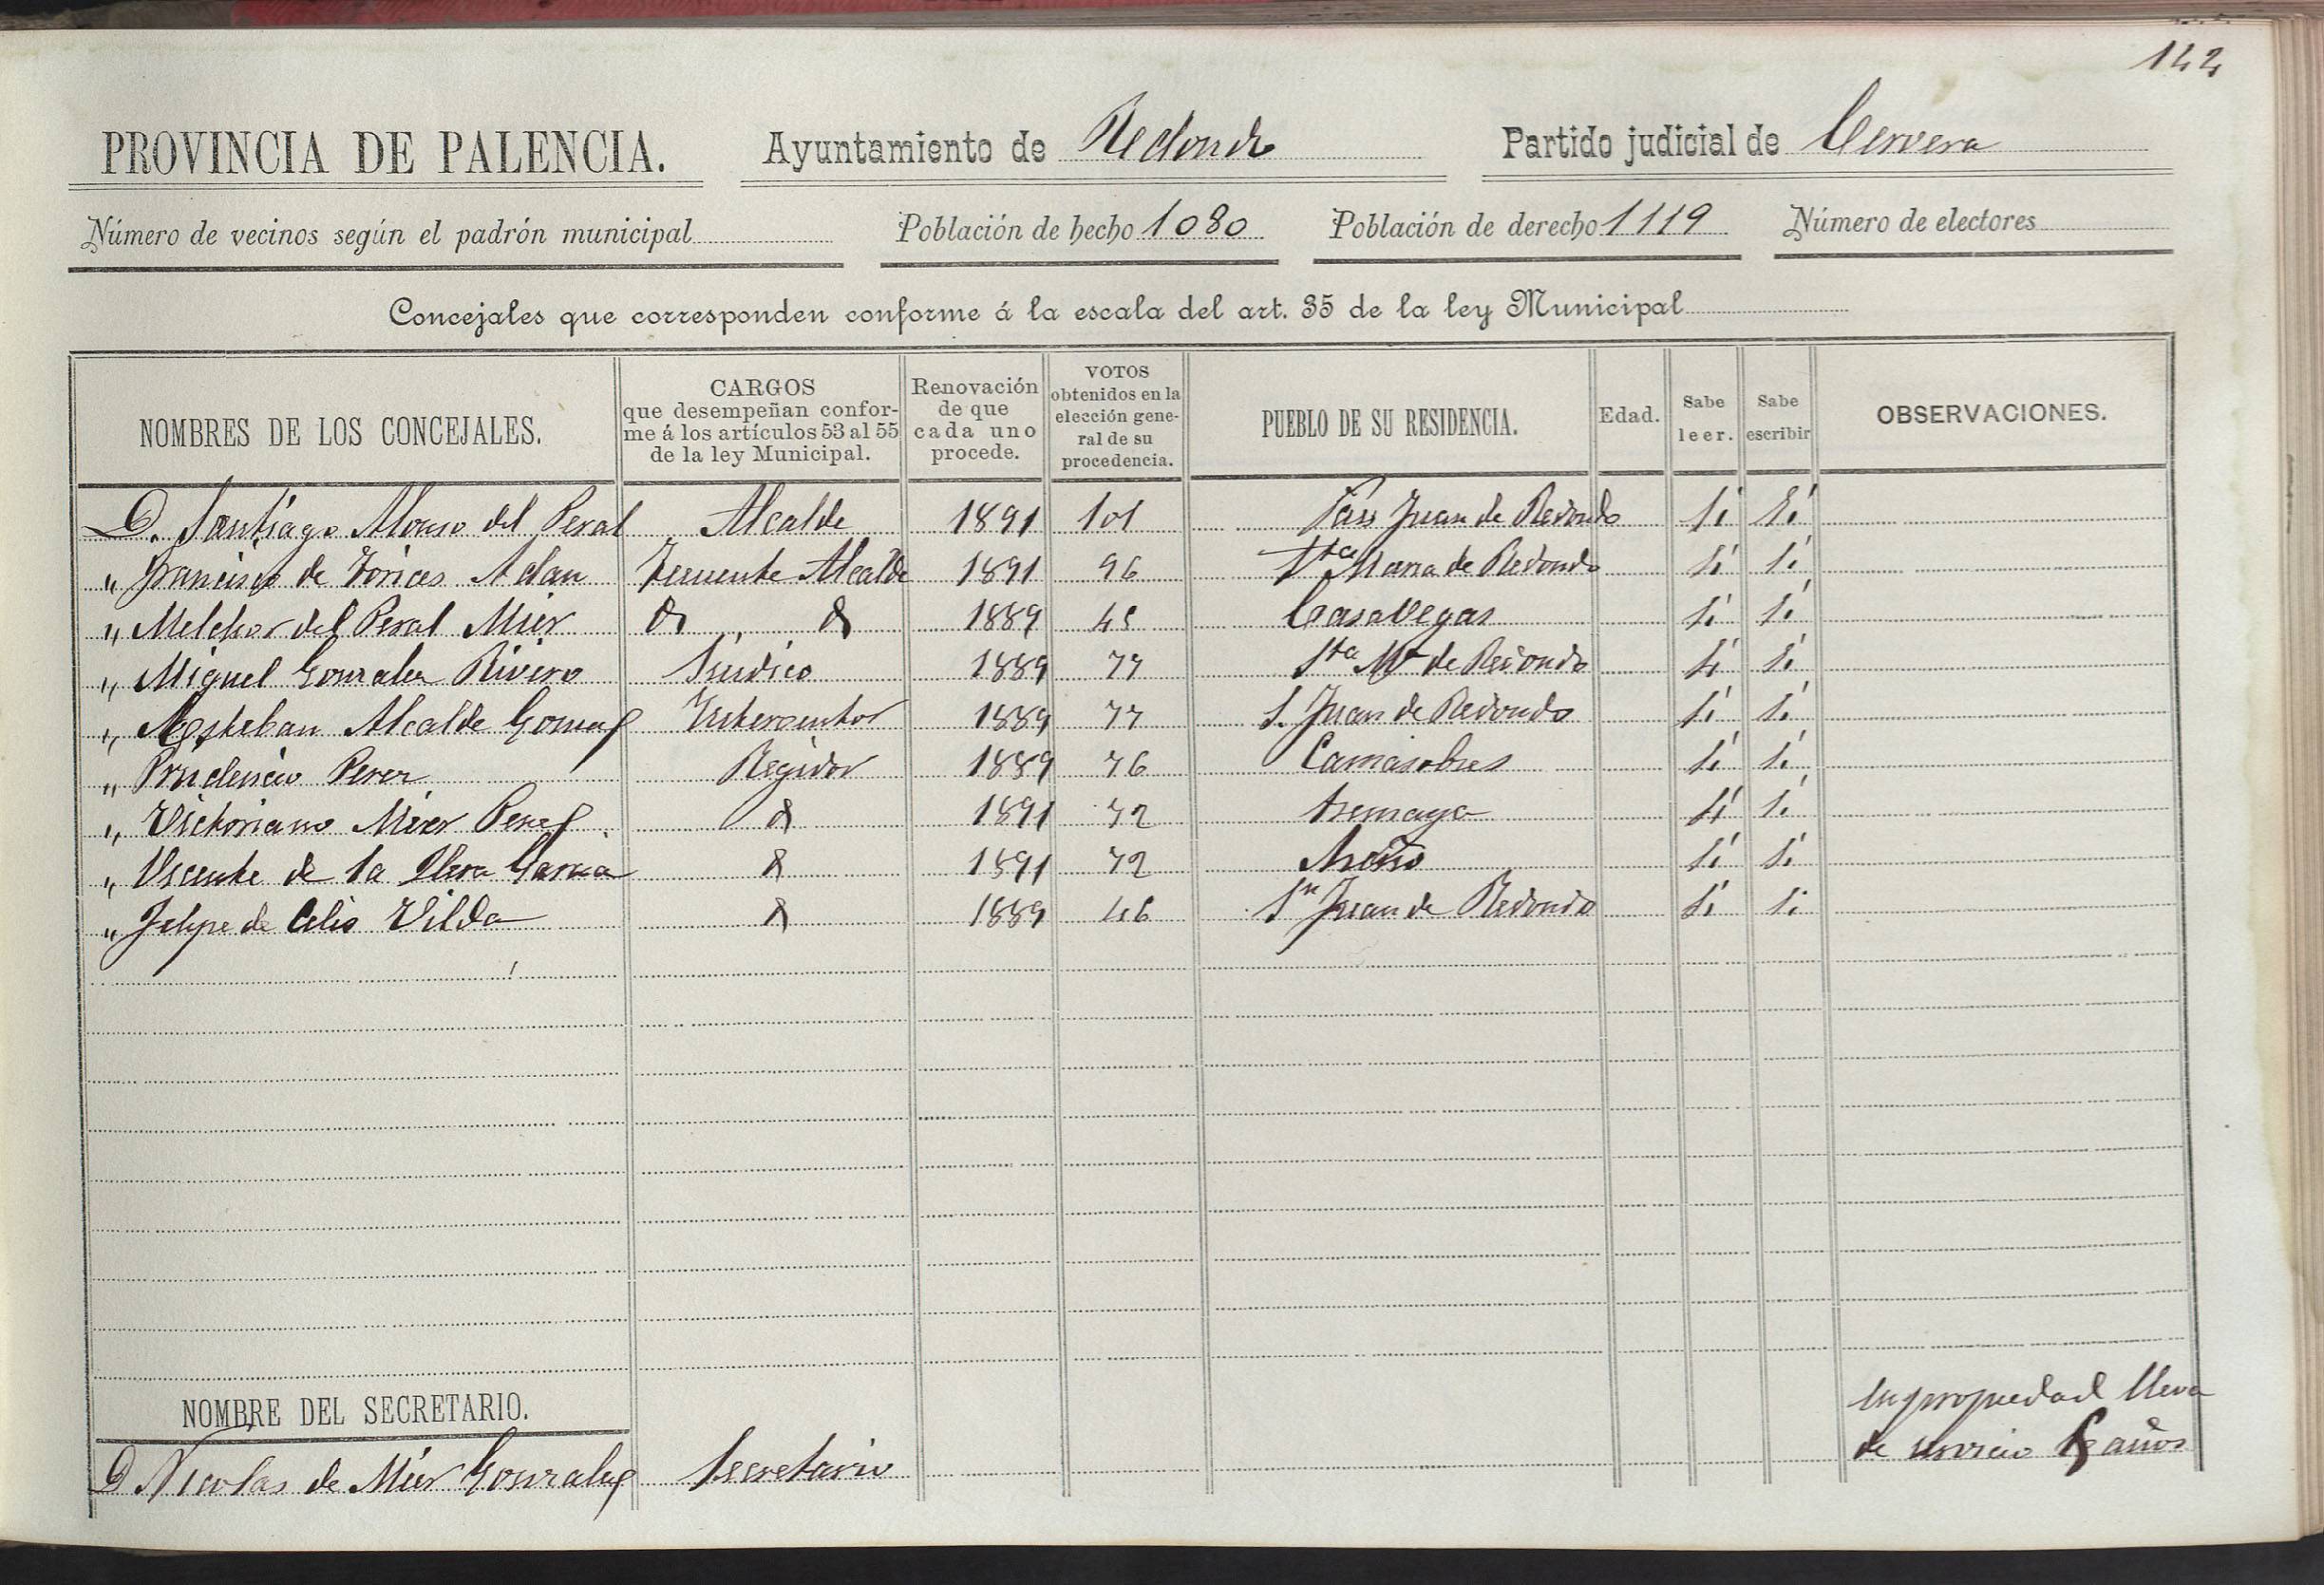 142
PROVINCIA DE PALENCIA. Ayuntamiento de Redondo Partido judicial de Cervera
Número de vecinos según el padrón municipal Población de hecho 1080 Población de derecho 1119 Número de electores
Concejales que corresponden conforme á la escala del art. 35 de la ley Municipal
NOMBRES DE LOS CONCEJALES. CARGOS que desempeñan confor- me á los artículos 53 al 55 de la ley Municipal. Renovación de que cada uno procede. VOTOS obtenidos en la elección gene- ral de su procedencia. PUEBLO DE SU RESIDENCIA. Edad. Sabe leer. Sabe escribir OBSERVACIONES.
D. Santiago Alonso del Peral Alcalde 1891 101 San Juan de Redondo Sí Sí
" Francisco de Torices Adan Teniente Alcalde 1891 96 Sta Maria de Redondo Sí Sí
" Melchor del Peral Mier d d 1889 45 Casavegas Sí Sí
" Miguel Gonzalez Rivero Sindico 1889 77 Sta Mª de Redondo Sí Sí
" Esteban Alcalde Gomez Interventor 1889 77 S. Juan de Redondo Sí Sí
" Prudencio Perez Regidor 1889 76 Camasobres Sí Sí
" Victoriano Mier Perez d 1891 72 tremaya Sí Sí
" Vicente de la Llera Garcia d 1891 72 Areños Sí Sí
" Felipe de Celis Vilda d 1889 46 Sn Juan de Redondo Sí Sí
NOMBRE DEL SECRETARIO.
D Nicolas de Mier Gonzalez Secretario
en propiedad lleva
de servicio años